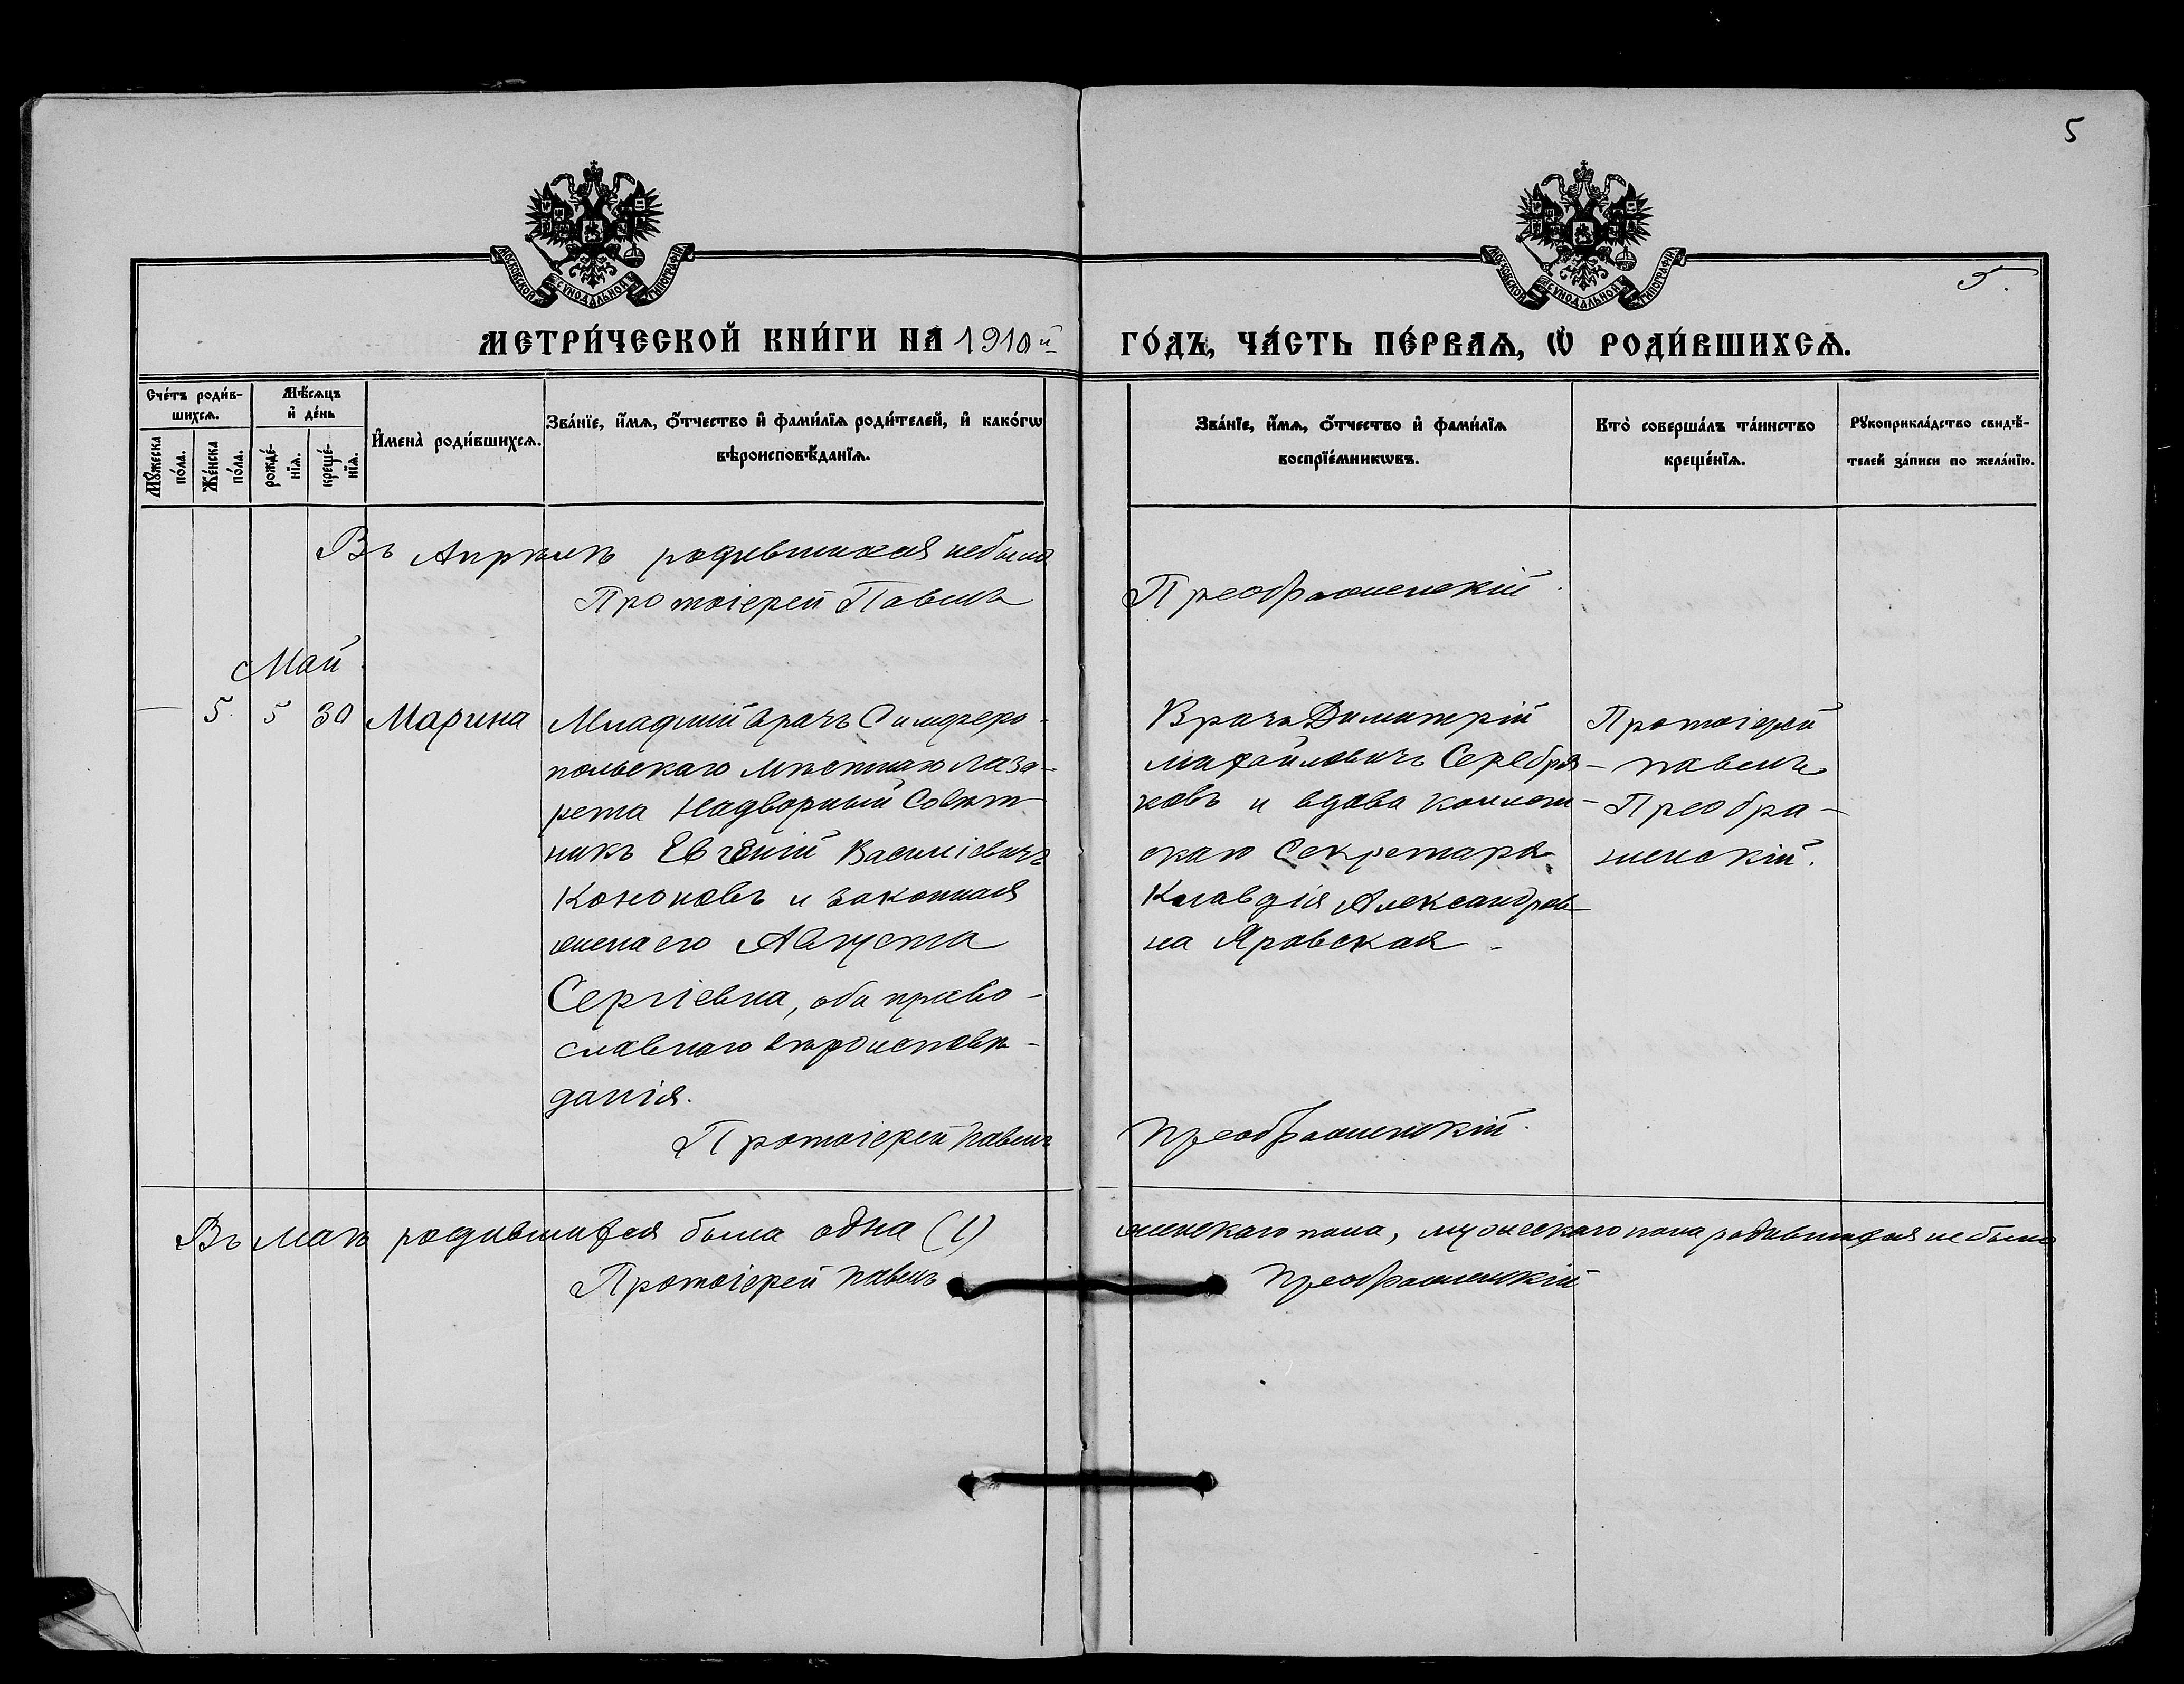 5
МОСКОВСКОЙ СѴНОДАЛЬНОЙ ТИПОГРАФІИ
МОСКОВСКОЙ СѴНОДАЛЬНОЙ ТИПОГРАФІИ
5.
МЕТРИ́ЧЕСКОЙ КНИ́ГИ НА 1910й
ГО́ДЪ, ЧА́СТЬ ПЕ́РВАѦ, Ѡ РОДИ́ВШИХСѦ.
Сче́тъ роди́в-
шихсѧ.
Мꙋ́жеска
по́ла.
Же́нска
по́ла.
Мѣ́сѧцъ
и҆ де́нь
рожде́-
нїѧ.
креще́-
нїѧ.
И҆мена̀ роди́вшихсѧ.
Зва́нїе, и҆́мѧ, ѻ҆́тчество и҆ фами́лїѧ роди́телей, и҆ како́гѡ
вѣроисповѣ́данїѧ.
Зва́нїе, и҆́мѧ, ѻ҆́тчество и҆ фами́лїѧ
воспрїе́мникѡвъ.
Кто̀ соверша́лъ та́инство
креще́нїѧ.
Рꙋкоприкла́дство свидѣ́-
телей за́писи по жела́нїю.
Въ Апрѣлѣ родившихся небыло
Протоіерей Павелъ
Преображенскій.
Май.
— 5. 5 30 Марина
Младшій врачъ Симферо-
польскаго мѣстнаго лаза-
рета Надворный Совѣт-
никъ Евгеній Василіевичъ
Кононовъ и законная
жена его Августа
Сергіевна, оба право-
славнаго вѣроисповѣ-
данія.
Протоіерей Павелъ
Врачъ Димитрій
Михайловичъ Серебря-
ковъ и вдова коллеж-
скаго Секретаря
Клавдія Александров-
на Яровская.
Преображенскій.
Протоіерей
Павелъ
Преобра-
женскій.
Въ маѣ родившихся была одна (1)
женскаго пола, мужескаго пола родившихся не было
Протоіерей Павелъ
Преображенскій